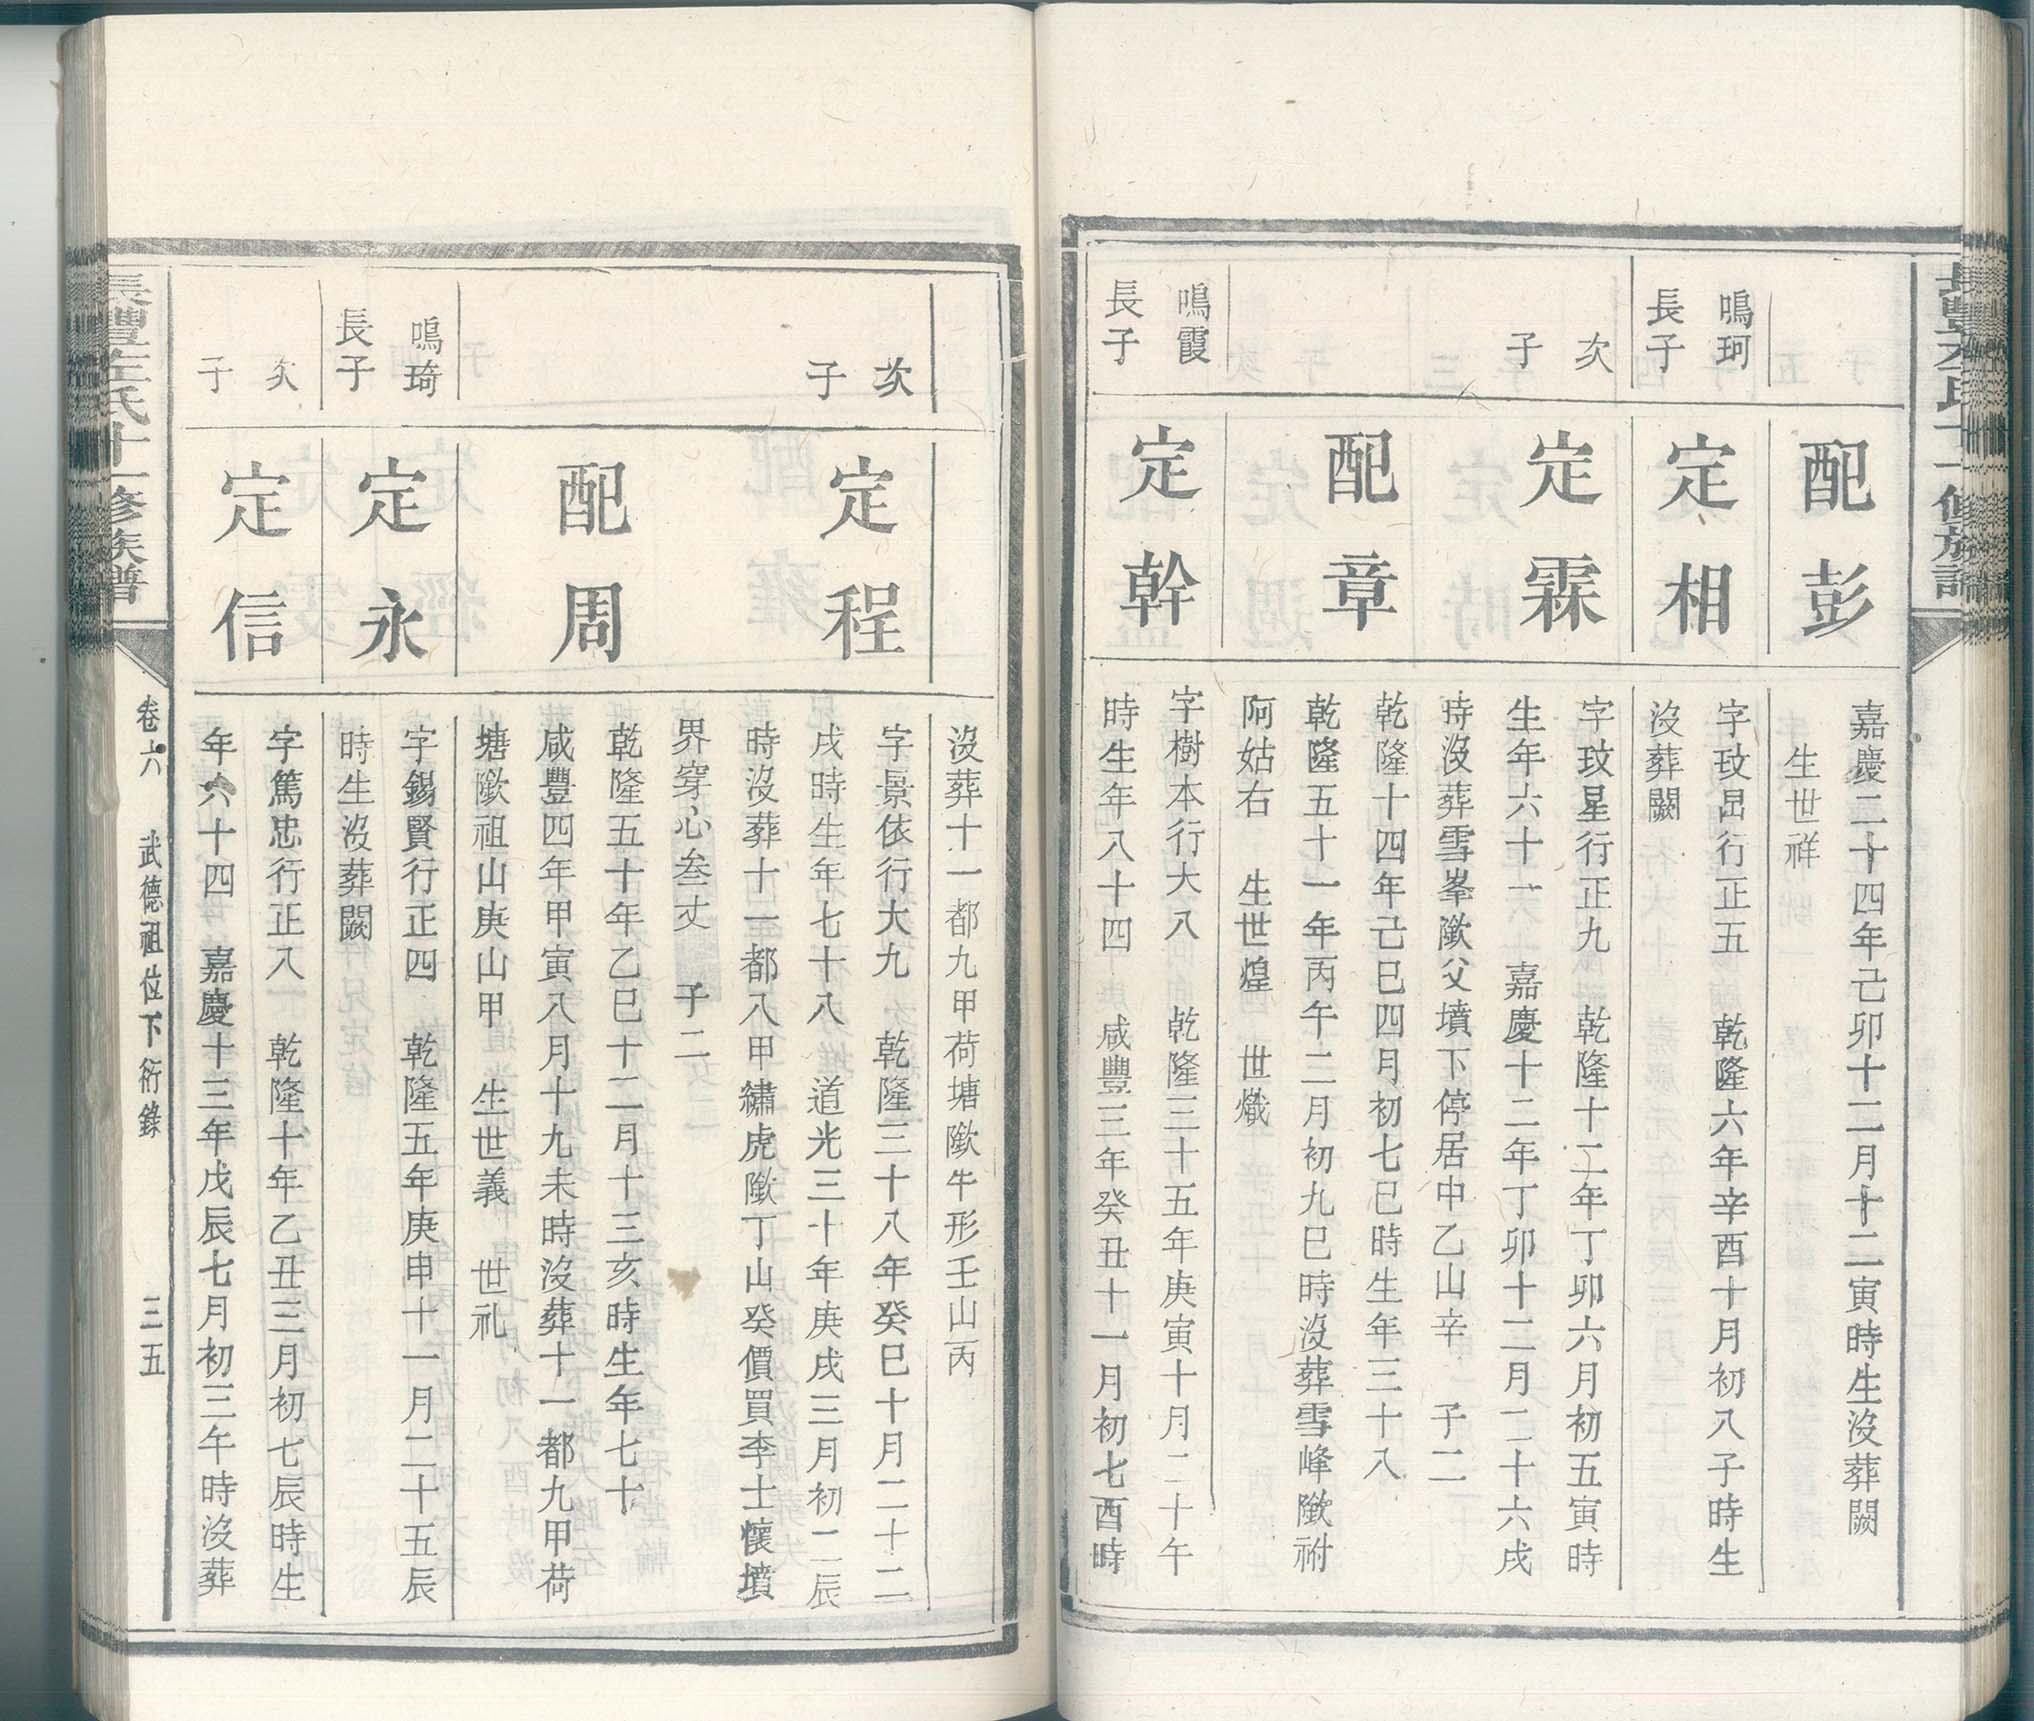 長豐左氏十一修族譜
配彭
嘉慶二十四年己卯十二月十二寅時生沒葬闕
生世祥
鳴珂
長子
定相
字玟昌行正五 乾隆六年辛酉十月初八子時生
沒葬闕
次
子
定霖
字玟星行正九 乾隆十二年丁卯六月初五寅時
生年六十一 嘉慶十二年丁卯十二月二十六戌
時沒葬雪峯隞父墳下停居中乙山辛 子二
配章
乾隆十四年己巳四月初七巳時生年三十八
乾隆五十一年丙午二月初九巳時沒葬雪峰隞祔
阿姑右 生世煌 世熾
鳴霞
長子
定幹
字樹本行大八 乾隆三十五年庚寅十月二十午
時生年八十四 咸豐三年癸丑十一月初七酉時
沒葬十一都九甲荷塘隞牛形壬山丙
次
子
定程
字景依行大九 乾隆三十八年癸巳十月二十二
戌時生年七十八 道光三十年庚戌三月初二辰
時沒葬十一都八甲繡虎隞丁山癸價買李士懷墳
界穿心叁丈 子二
配周
乾隆五十年乙巳十二月十三亥時生年七十
咸豐四年甲寅八月十九未時沒葬十一都九甲荷
塘隞祖山庚山甲 生世義 世礼
鳴琦
長子
定永
字錫賢行正四 乾隆五年庚申十一月二十五辰
時生沒葬闕
次
子
定信
字篤忠行正八 乾隆十年乙丑三月初七辰時生
年六十四 嘉慶十三年戊辰七月初三午時沒葬
長豐左氏十一修族譜
卷六 武德祖位下衍錄 三五